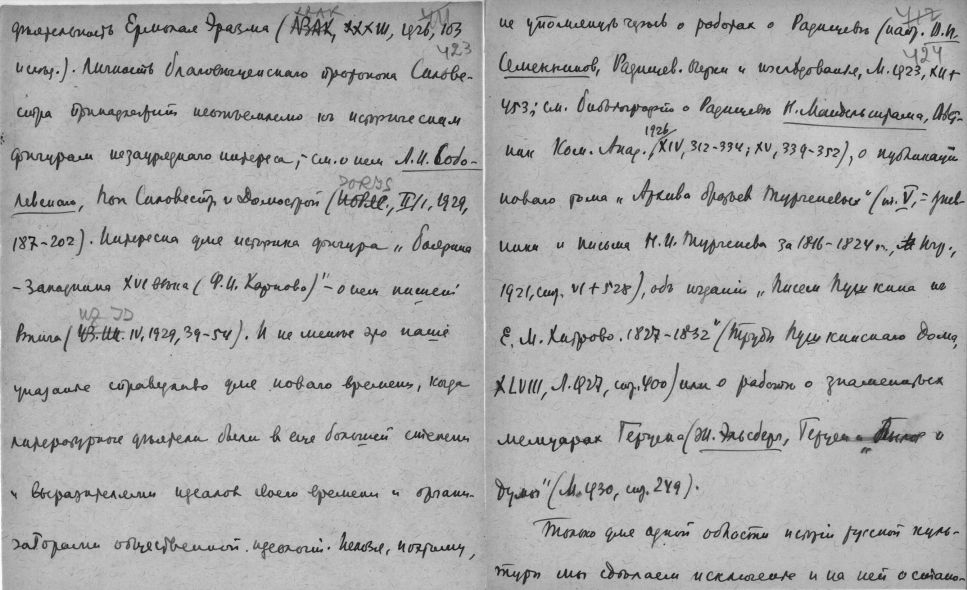 деятельность Ермолая Эразма (ЛЗАК, XXXIII, 1926, 103
423
и след.). Личность благовещенского протопопа Сильве-
стра принадлежит неотъемлемо к историческим
фигурам незаурядного интереса, – см. о нем А. И. Собо-
левского, Поп Сильвестр и Домострой (ИОРЯС, II/1, 1929,
187-202). Интересна для историка фигура „боярина
– западника XVI века (Ф. И. Карпова)" – о нем пишет
Ржига (ИЗ. IV, 1929, 39-54). И не менее это наше
указание справедливо для нового времени, когда
литературные деятели были в еще большей степени
и выразителями идеалов своего времени и органи-
заторами общественной идеологии. Нельзя, поэтому,
не упомянуть здесь о работах о Радищеве (напр. В. П.
424
Семенников, Радищев. Очерки и исследования, М. 1923, XII+
453; см. библиографию о Радищеве Н. Мандельштама, Вест-
ник Ком. Акад., 1926 XIV, 312-334; XV, 339-352), о публикации
нового тома „Архива братьев Тургеневых" (т. V, = днев-
ники и письма Н. И. Тургенева за 1816-1824 гг., Пгр.,
1921, стр. VI + 528), об издании „Писем Пушкина к
Е. М. Хитрово. 1827-1832" (Труды Пушкинского Дома,
XLVIII, Л. 1927, стр. 400) или о работе о знаменитых
мемуарах Герцена (Ж. Эльсберг, Герцен „Былое и
думы" (М. 1930, стр. 249).
Только для одной области истории русской куль-
туры мы сделаем исключение и на ней остано-